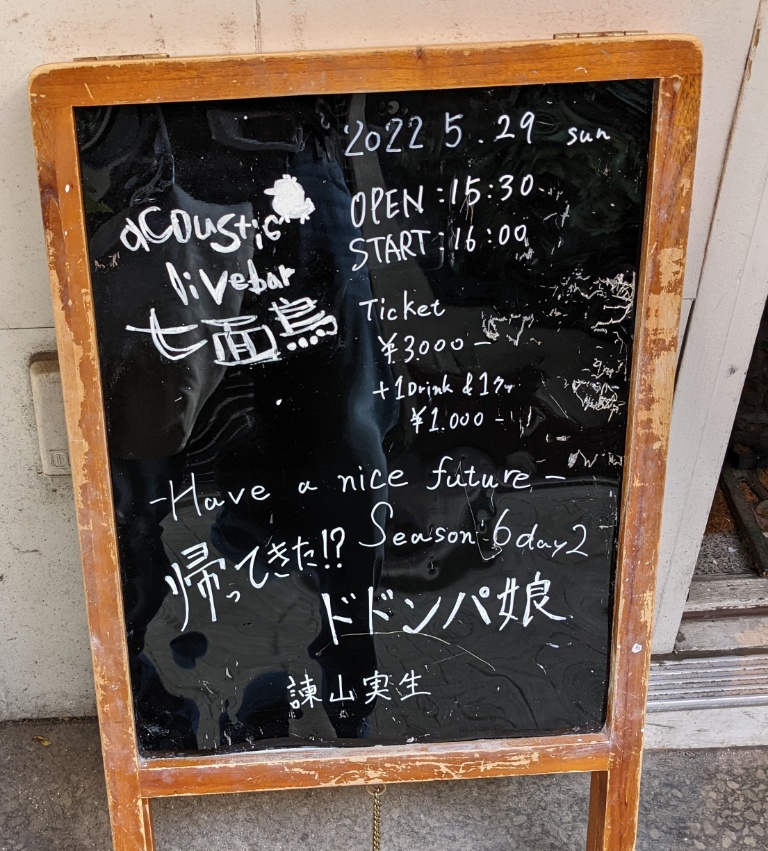 2022 5.29 sun
acoustic
livebar
七面鳥
OPEN:15:30-
START:16:00
Ticket
¥3000-
+1Drink & 1フー
¥1.000-
-Have a nice future-
Season 6 day2
帰ってきた!?
ドドンパ娘
諫山実生